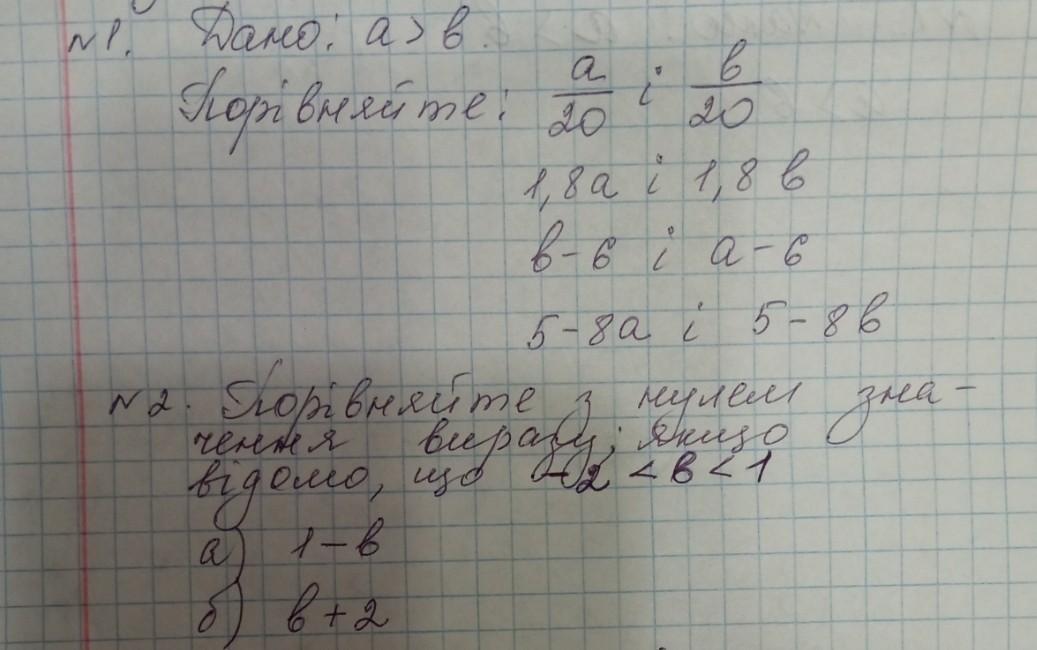 №1. Дано: а > в.
Порівняйте: а/20 і в/20
1,8а і 1,8в
в-6 і а-6
5-8а і 5-8в
№2. Порівняйте з нулем зна-
чення виразу, якщо
відомо, що -2 < в < 1
а) 1-в
б) в+2